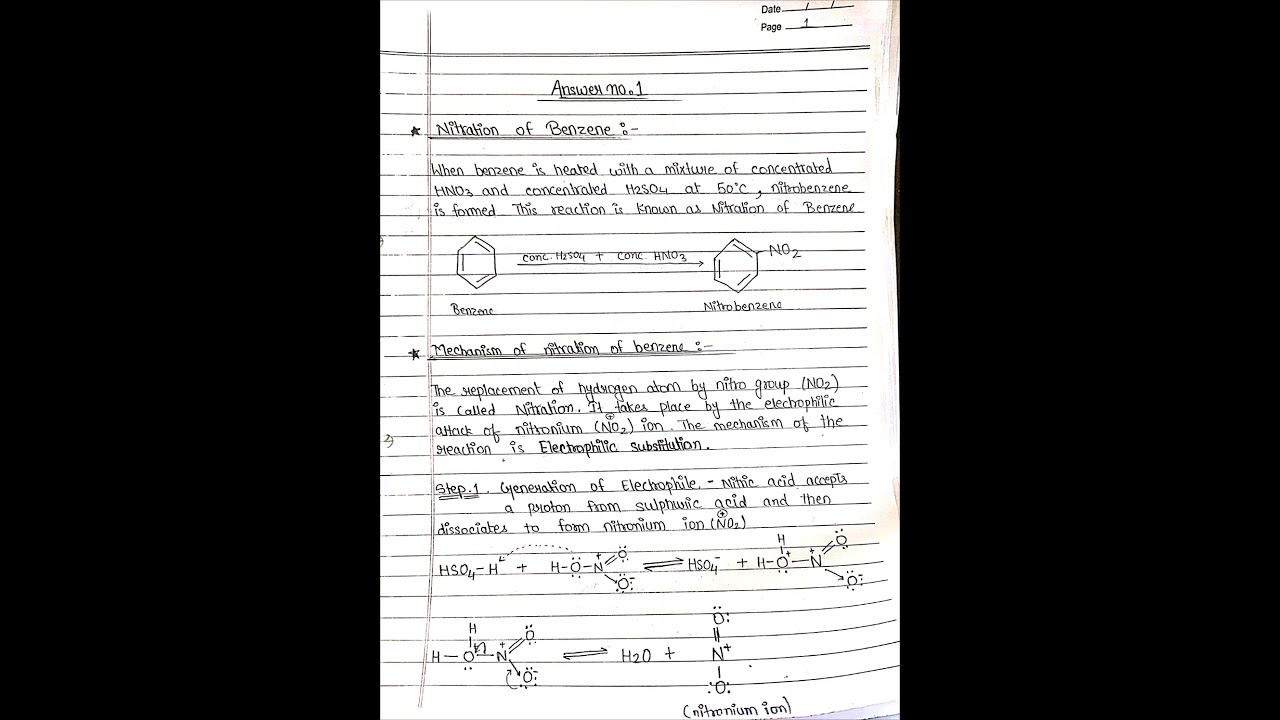 Date / /
Page 1
Answer no.1
★ Nitration of Benzene :-
When benzene is heated with a mixture of concentrated
HNO3 and concentrated H2SO4 at 50°C, nitrobenzene
is formed. This reaction is known as Nitration of Benzene
conc. H2SO4 + conc. HNO3
NO2
Benzene
Nitrobenzene
★ Mechanism of nitration of benzene :-
The replacement of hydrogen atom by nitro group (NO2)
is called Nitration. It takes place by the electrophilic
attack of nitronium (N⊕O2) ion. The mechanism of the
reaction is Electrophilic substitution.
Step.1. Generation of Electrophile. - Nitric acid accepts
a proton from sulphuric acid and then
dissociates to form nitronium ion (N⊕O2)
H O
HSO4-H + H-O-N+ O ⇌ HSO4- + H-O+-N+
O- O-
O:
H O ||
H-O-N+ ⇌ H2O + N+
O- |
:O:
(nitronium ion)